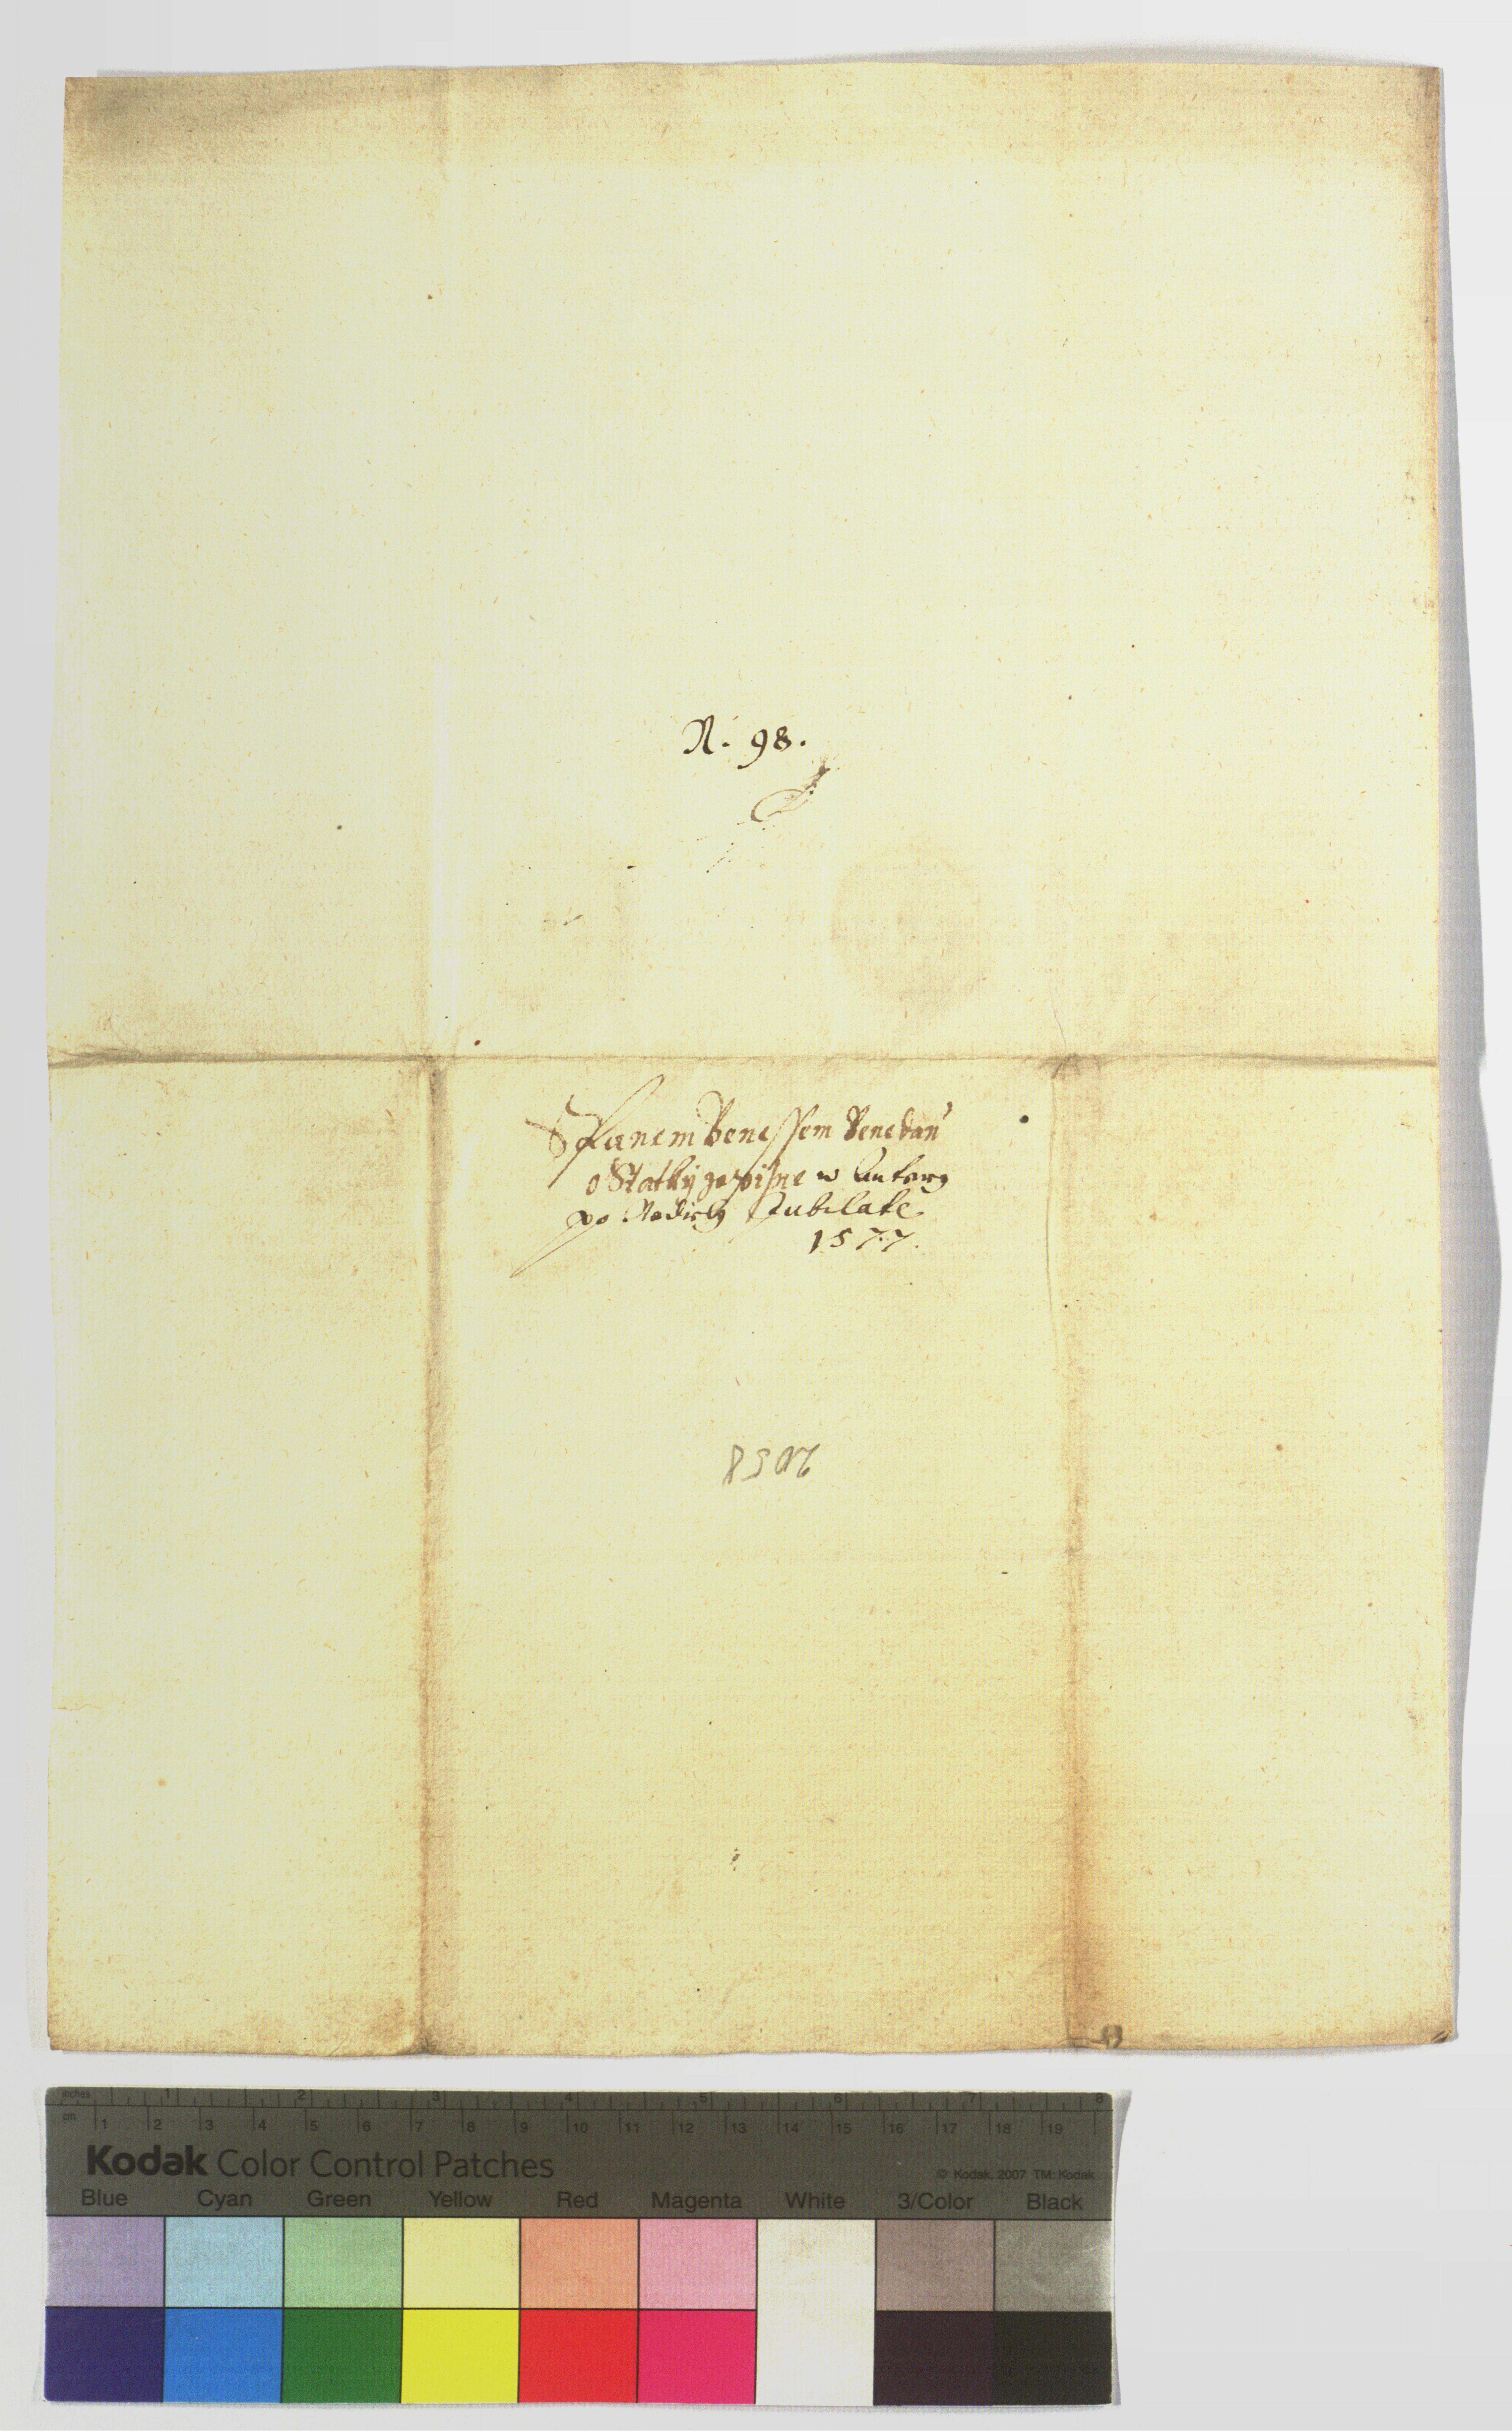 N. 98.
S Panem Benessem Benedau
o Statky zapisne w Autery
po Nedieli Jubilate.
1577.
inches 1 2 3 4 5 6 7 8
cm 1 2 3 4 5 6 7 8 9 10 11 12 13 14 15 16 17 18 19
Kodak Color Control Patches
© Kodak, 2007 TM: Kodak
Blue Cyan Green Yellow Red Magenta White 3/Color Black